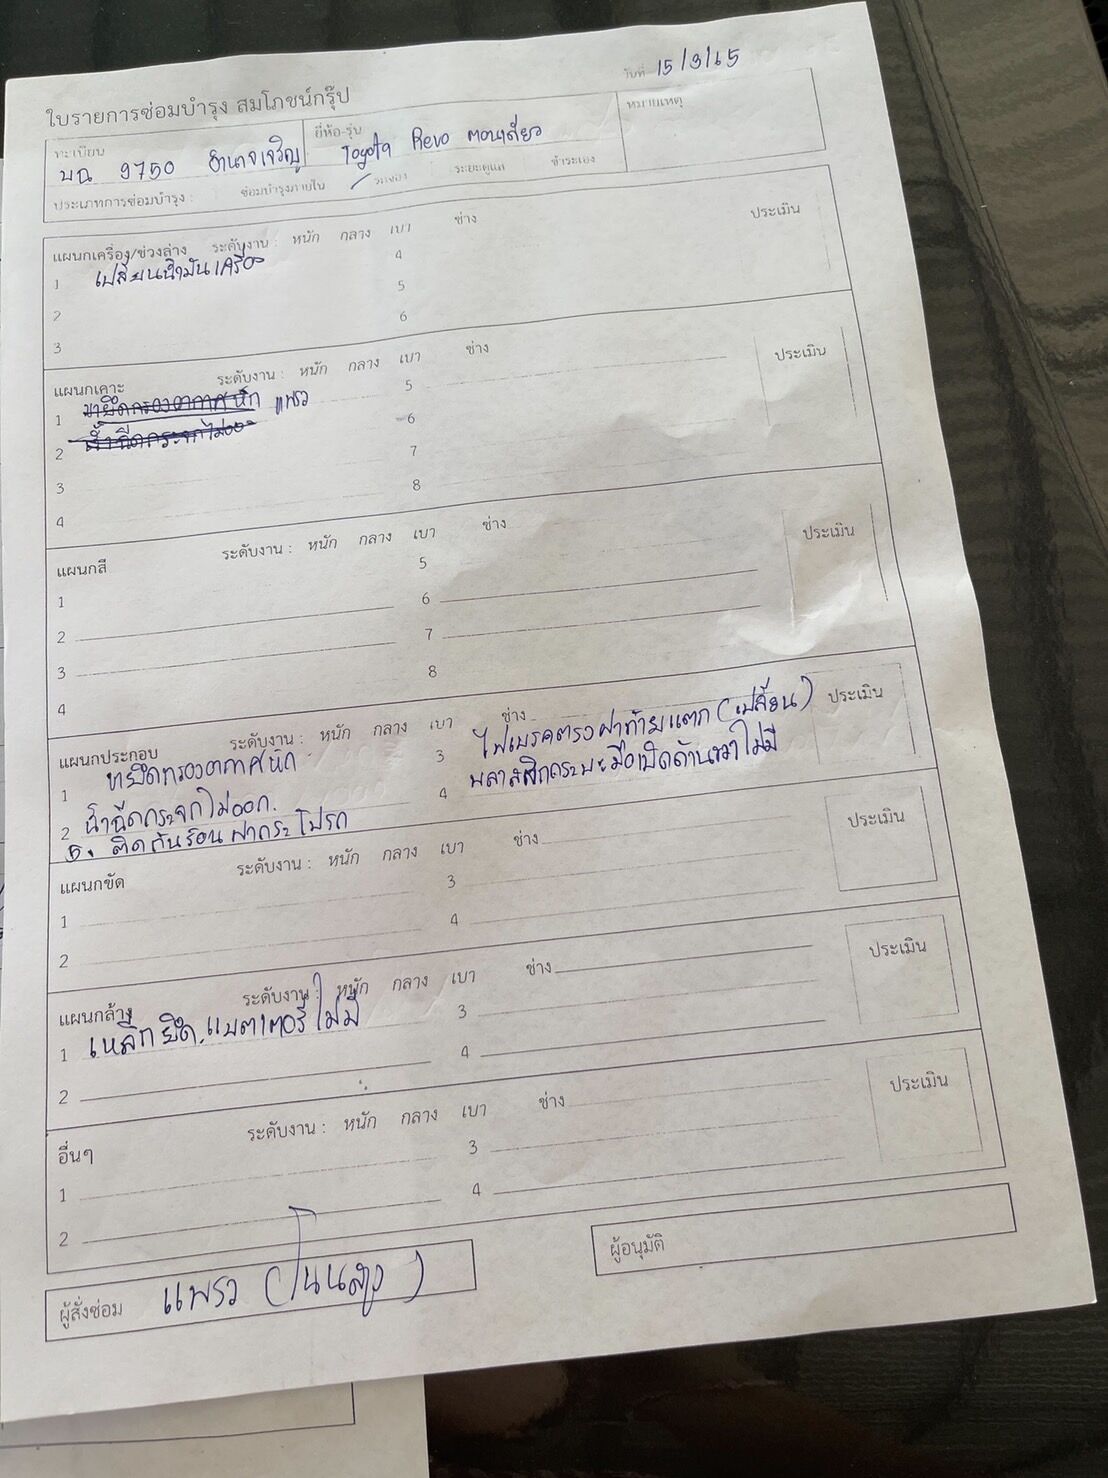 ใบรายการซ่อมบำรุง สมโภชน์กรุ๊ป
วันที่ 15/3/65
ทะเบียน บฉ 9750 อำนาจเจริญ ยี่ห้อ-รุ่น Toyota Revo ตอนเดียว หมายเหตุ
ประเภทการซ่อมบำรุง : ซ่อมบำรุงภายใน รถจอง ระยะดูแล ชำระเอง
แผนกเครื่อง/ช่วงล่าง ระดับงาน : หนัก กลาง เบา ช่าง ประเมิน
1 เปลี่ยนน้ำมันเครื่อง 4
2 5
3 6
แผนกเคาะ ระดับงาน : หนัก กลาง เบา ช่าง ประเมิน
1 ขายึดกรองอากาศหัก แพรว 5
2 น้ำฉีดกระจกไม่ออก 6
3 7
4 8
แผนกสี ระดับงาน : หนัก กลาง เบา ช่าง ประเมิน
1 5
2 6
3 7
4 8
แผนกประกอบ ระดับงาน : หนัก กลาง เบา ช่าง ประเมิน
1 ขายึดกรองอากาศหัก 3 ไฟเบรคตรงฝาท้ายแตก (เปลี่ยน)
2 น้ำฉีดกระจกไม่ออก. 4 พลาสติกกระบะมือเปิดด้านขวาไม่มี
5. ติดกันร้อนฝากระโปรง
แผนกขัด ระดับงาน : หนัก กลาง เบา ช่าง ประเมิน
1 3
2 4
แผนกล้าง ระดับงาน : หนัก กลาง เบา ช่าง ประเมิน
1 เหล็กยึดแบตเตอรี่ไม่มี 3
2 4
อื่นๆ ระดับงาน : หนัก กลาง เบา ช่าง ประเมิน
1 3
2 4
ผู้สั่งซ่อม แพรว ผู้อนุมัติ